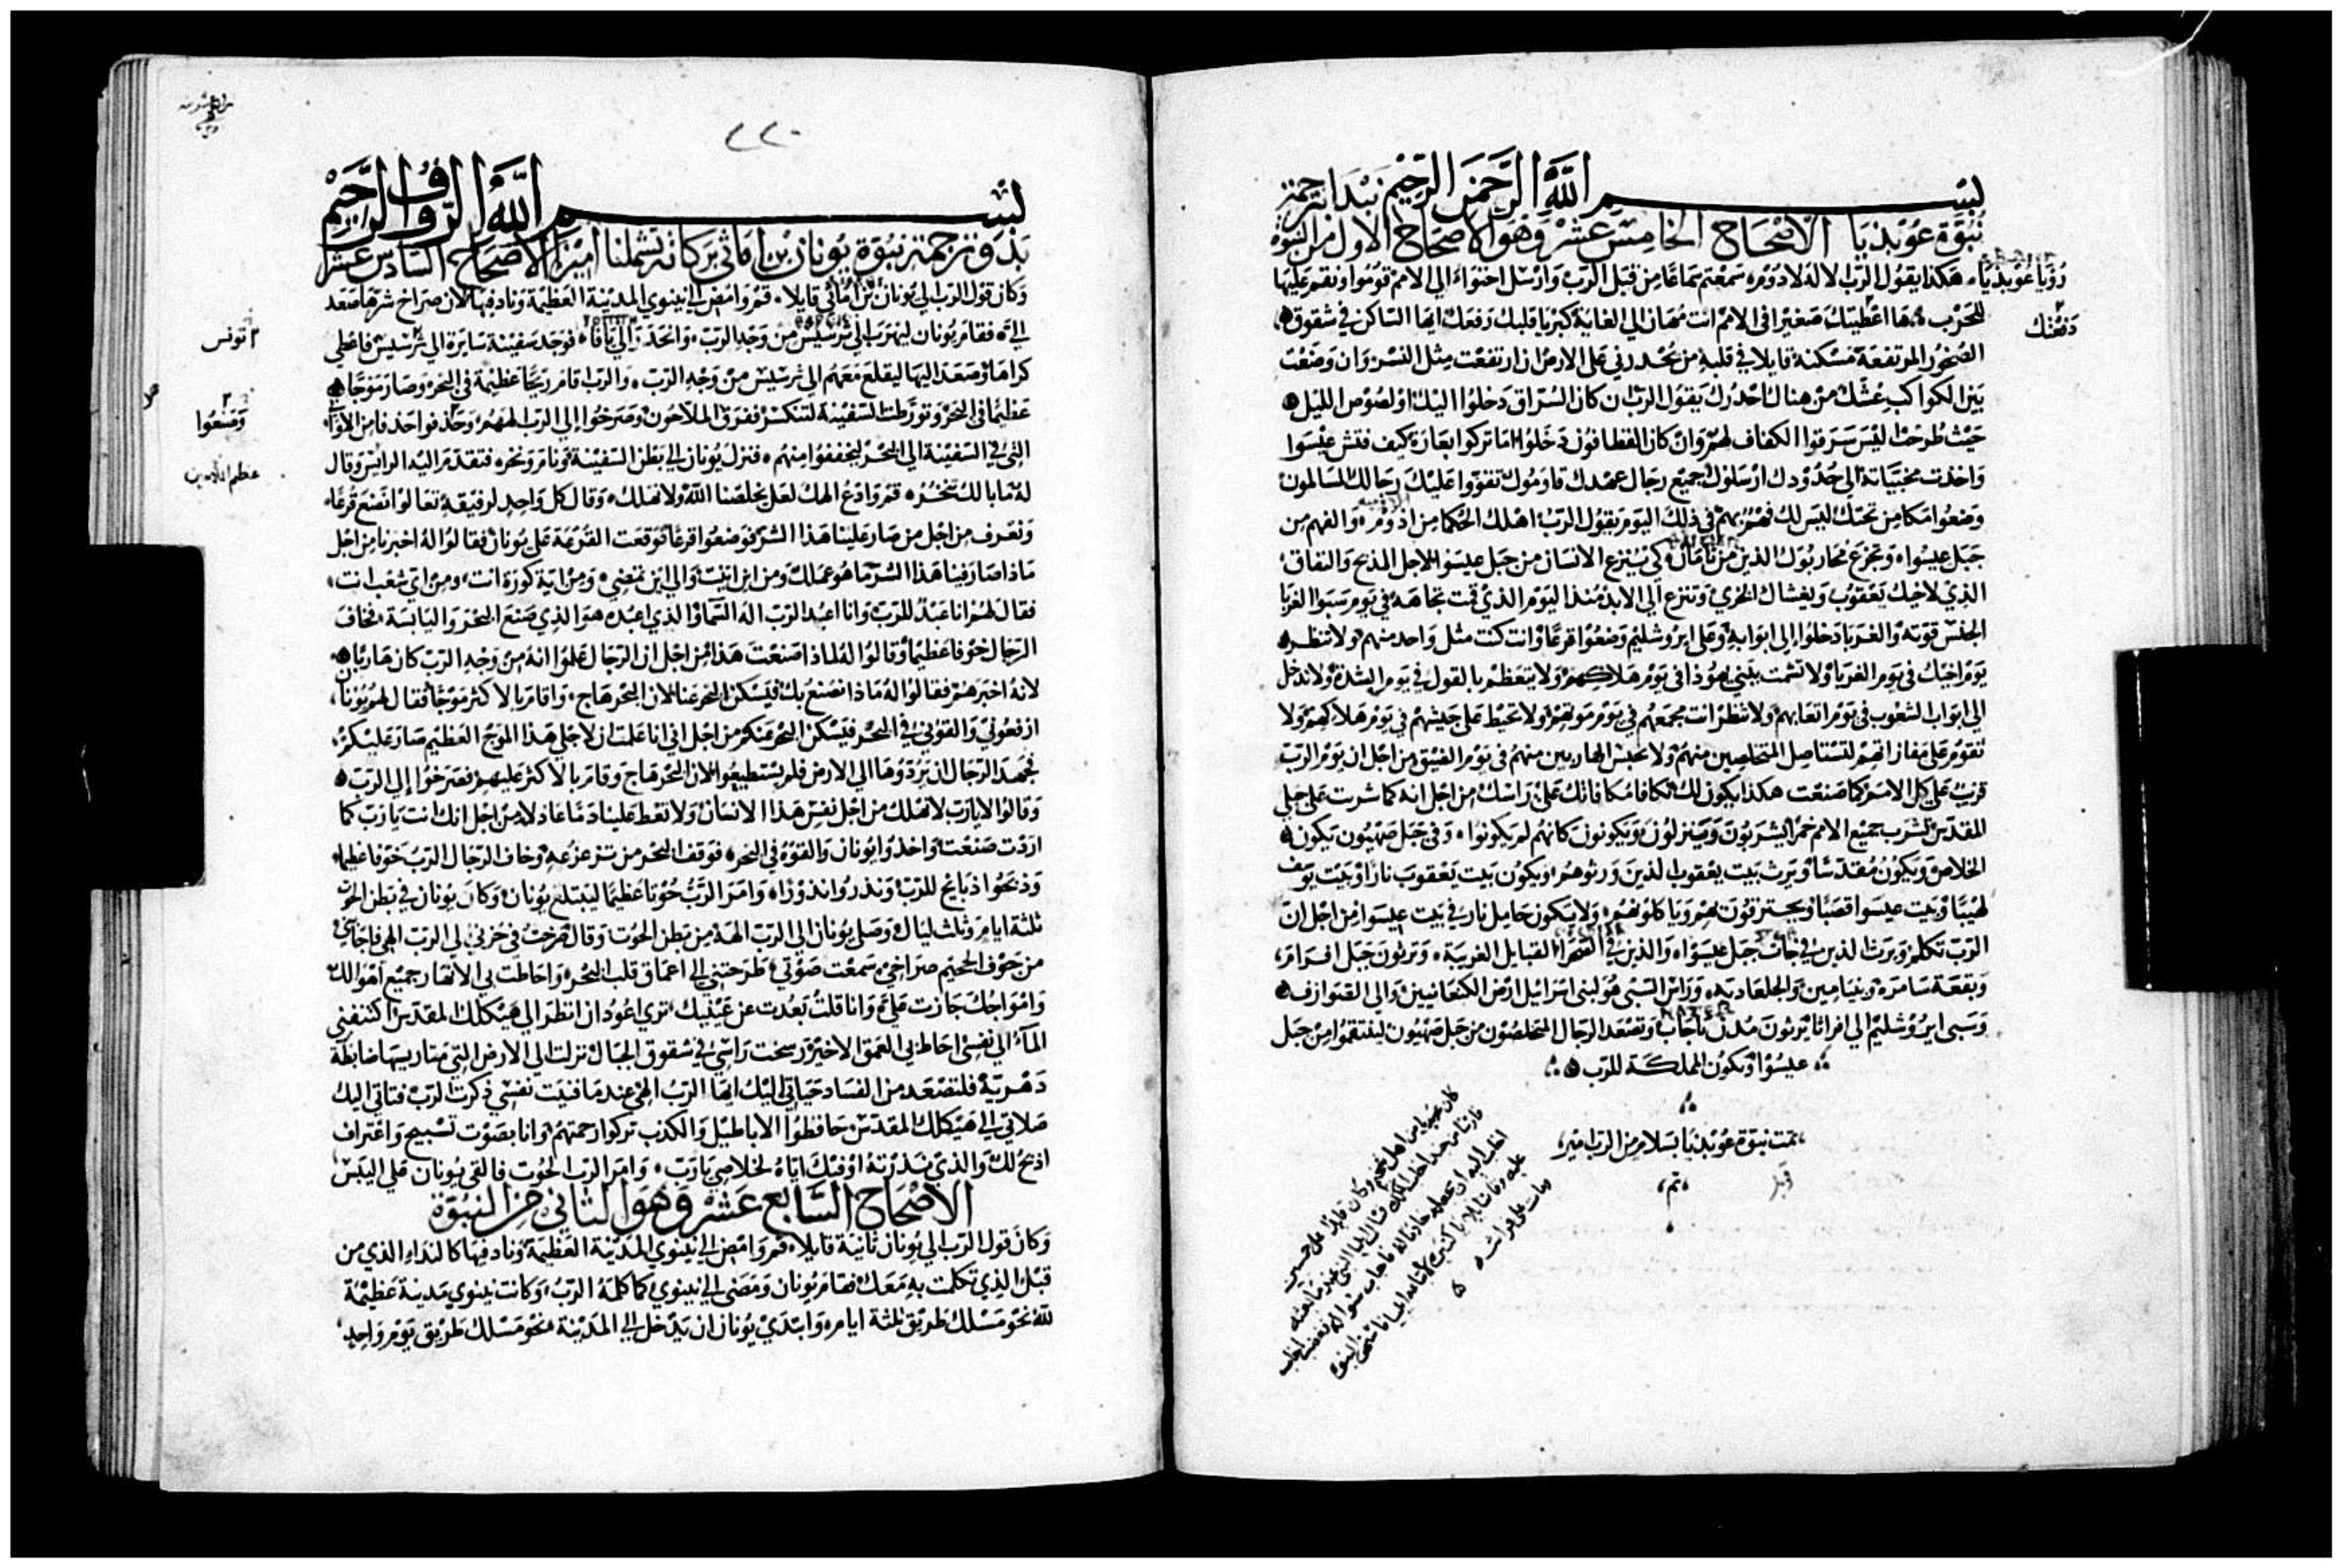 بسم الله الرحمن الرحيم نبدا بترجمة
نبوة عوبذيا الاصحاح الخامس عشر وهو الاصحاح الاول من النبوة
رؤيا عوبذيا، هكذا يقول الرب الاله لادوم، سمعتم سماعا من قبل الرب وارسل احتواء الي الامم قوموا ونقم عليها
للحرب، ها اعطيتك صغيرا في الامم انت مهان الي الغاية كبريا قلبك رفعك ايها الساكن في شقوق
الصخور المرتفعة مسكنه قايلا في قلبه من يحدرني علي الارض ان ارتفعت مثل النسر وان وضعت
بين الكواكب عشك من هناك احدرك يقول الرب ان كان السراق دخلوا اليك او لصوص الليل
حيث طرحت ليس سرقوا الكفاف لهم وان كان القطافون دخلوا اما تركوا بعارة كيف فتش عيسوا
واخذت مخبياته الي حدودك ارسلوك جميع رجال عهدك قاوموك تقووا عليك رجالك المسالمون
وضعوا مكامن تحتك ليس لك فهم بهم في ذلك اليوم يقول الرب اهلك الحكما من ادوم، والفهم من
جبل عيسوا، وتجزع محاربوك الذين من تامان، كي ينزع الانسان من جبل عيسوا لاجل المذبح والنفاق
الذي لاخيك يعقوب ويغشاك الخزي وتنزع الي الابد منذ اليوم الذي قمت تجاهه في يوم سبوا الغربا
الجنس قوته والغربا دخلوا الي ابوابه وعلي ايروشليم وضعوا قرعا وانت كنت مثل واحد منهم ولا تنظر
يوم اخيك في يوم الغربا ولا تشمت ببني يهوذا في يوم هلاكهم ولا تتعظم بالقول في يوم الشدة ولا تدخل
الي ابواب الشعوب في يوم اتعابهم ولا تنظر انت مجمعهم في يوم موتهم ولا تحيط علي جيشهم في يوم هلاكهم ولا
تقوم علي مفازاتهم لتستاصل المتخلصين منهم ولا تحبس الهاربين منهم في يوم الضيق من اجل ان يوم الرب
قريب علي كل الامم كما صنعت هكذا يكون لك مكافا مكافاتك علي راسك من اجل انه كما شربت علي جبلي
المقدس تشرب جميع الامم خمرا يشربون وينزلون ويكونون كانهم لم يكونوا، وفي جبل صهيون يكون
الخلاص ويكون مقدسا ويرث بيت يعقوب الذين ورثوهم ويكون بيت يعقوب نارا وبيت يوسف
لهيبا وبيت عيسوا قصبا ويحترقون بهم وياكلونهم، ولا يكون حامل نار في بيت عيسوا من اجل ان
الرب تكلم ويرث الذين في جاب جبل عيسوا، والذين في القفرا القبايل الغريبة، ويرثون جبل افرام،
وبقعة سامرة وبنيامين والجلعادية، وراس السبي هو لبني اسرائيل ارض الكنعانيين والي القنوازف
وسبي ايروشليم الي افراثا يرثون مدن ناجاب وتصعد الرجال المخلصون من جبل صهيون لينتقموا من جبل
عيسوا وتكون المملكة للرب
تمت نبوة عوبذيا بسلام من الرب امين
تم
قوبل
٢
دفعك
٢٢٠
بسم الله الروف الرحيم
بدو ترجمة نبوة يونان بن اماثي بركاته تشملنا امين الاصحاح السادس عشر
وكان قول الرب الي يونان بن اماثي قايلا، قم وامض الي نينوي المدينة العظيمة وناد فيها لان صراخ شرها صعد
الي، فقام يونان ليهرب الي ثرسيس من وجه الرب، وانحدر الي يافا، فوجد سفينة سايرة الي ثرسيس فاعطي
كراها وصعد اليها ليقلع معهم الي ثرسيس من وجه الرب، والرب اقام ريحا عظيمة في البحر وصار موجا
عظيما في البحر وتورطت السفينة لتنكسر ففرق الملاحون وصرخوا الي الرب الههم، وحذفوا حذفا من الاواني
التي في السفينة الي البحر ليخففوا منهم، فنزل يونان الي بطن السفينة ونام ونخر، فتقدم اليه الرائيس وقال
له ما بالك تنخر، قم وادع الهك لعل يخلصنا الله ولا نهلك، وقال كل واحد لرفيقه تعالوا نضع قرعا،
ونعرف من اجل من صار علينا هذا الشر فوضعوا قرعا فوقعت القرعة علي يونان فقالوا له اخبرنا من اجل
ماذا صار فينا هذا الشر ما هو عملك ومن اين اتيت والي اين تمضي، ومن اية كورة انت، ومن اي شعب انت،
فقال لهم انا عبد للرب وانا اعبد الرب اله السما والذي اعبده هو الذي صنع البحر واليابسة، فخاف
الرجال خوفا عظيما وقالوا له لماذا صنعت هذا من اجل ان الرجال علموا انه من وجه الرب كان هاربا
لانه اخبرهم فقالوا له ماذا نصنع بك فيسكن البحر عنا لان البحر هاج، واقام بالاكثر موجا فقال لهم يونان،
ارفعوني والقوني في البحر فيسكن البحر عنكم من اجل اني انا علمت ان لاجلي هذا الموج العظيم صار عليكم،
فجهد الرجال ان يردوها الي الارض فلم يستطيعوا لان البحر هاج وقام بالاكثر عليهم فصرخوا الي الرب
وقالوا لا يارب لا نهلك من اجل نفس هذا الانسان ولا تعط علينا دما عادلا من اجل انك انت يارب كما
اردت صنعت، واخذوا يونان والقوه في البحر، فوقف البحر من تزعزعه، وخاف الرجال الرب خوفا عظيما،
وذبحوا ذبايح للرب ونذروا نذورا، وامر الرب حوتا عظيما ليبتلع يونان وكان يونان في بطن الحوت
ثلثة ايام وثلث ليال، وصلي يونان الي الرب الهه من بطن الحوت وقال صرخت في حزني الي الرب الهي فاجابني
من جوف الجحيم صراخي، سمعت صوتي، طرحتني الي اعماق قلب البحر، واحاطت بي الانهار جميع اهوالك
وامواجك جازت علي، وانا قلت بعدت عن عينيك، تري اعود ان انظر الي هيكلك المقدس اكتنفني
الماء الي نفسي احاط بي العمق الاخير رسخت راسي في شقوق الجبال نزلت الي الارض التي متاريسها ضابطة
دهرية فلتصعد من الفساد حياتي اليك ايها الرب الهي عند ما فنيت نفسي ذكرت الرب فتاتي اليك
صلاتي الي هيكلك المقدس حافظوا الاباطيل والكذب تركوا رحمتهم وانا بصوت تسبيح واعتراف
اذبح لك والذي نذرته اوفيك اياه لخلاصي يارب، وامر الرب الحوت فالقي يونان علي اليبس
الاصحاح السابع عشر وهو الثاني من النبوة
وكان قول الرب الي يونان ثانية قايلا، قم وامض الي نينوي المدينة العظيمة وناد فيها كالنداء الذي من
قبل الذي تكلمت به معك فقام يونان ومضي الي نينوي كما كلمه الرب، وكانت نينوي مدينة عظيمة
لله نحو مسلك طريق ثلثة ايام، وابتدي يونان ان يدخل الي المدينة نحو مسلك طريق يوم واحد،
تونس
٢
وصنعوا